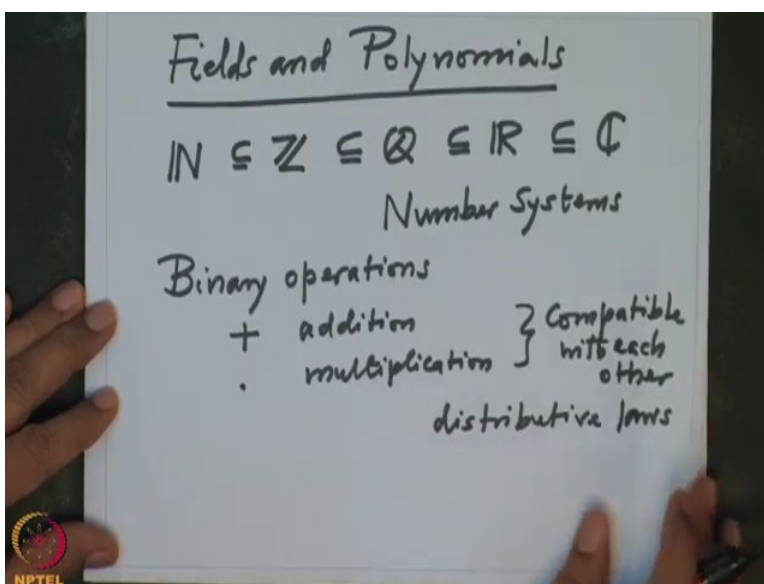 Fields and Polynomials
ℕ ⊆ ℤ ⊆ ℚ ⊆ ℝ ⊆ ℂ
Number Systems
Binary operations
+ addition } Compatible
. multiplication with each
other
distributive laws
NPTEL